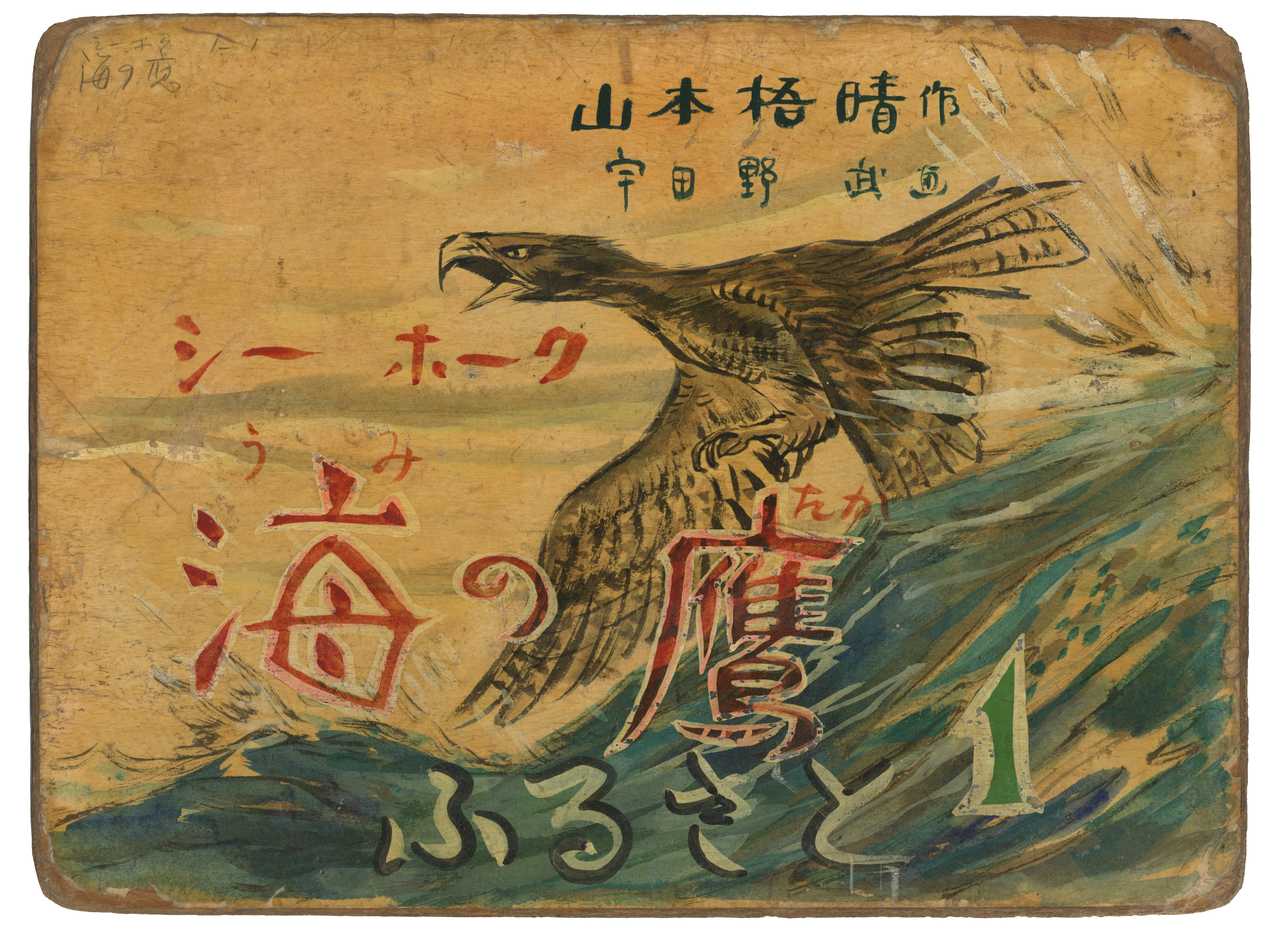 シーホーク
海の鷹
山本梧晴作
宇田野武画
シーホーク
うみ たか
海の鷹
1
ふるさと